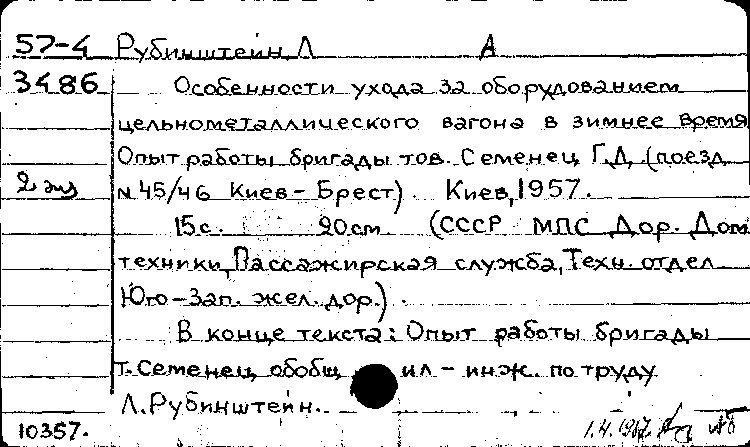 57-4 Рубинштейн Л А
3486 Особенности ухода за оборудованием
цельнометаллического вагона в зимнее время
Опыт работы бригады тов. Семенец Г.Д. (поезд
2 экз N 45/46 Киев - Брест). Киев, 1957.
15 с. 20 cm (СССР МПС Дор. Дом
техники, Пассажирская служба, Техн. отдел
Юго-Зап. жел. дор.).
В конце текста: Опыт работы бригады
т. Семенец обобщ ил - инж. по труду
Л. Рубинштейн.
10357.